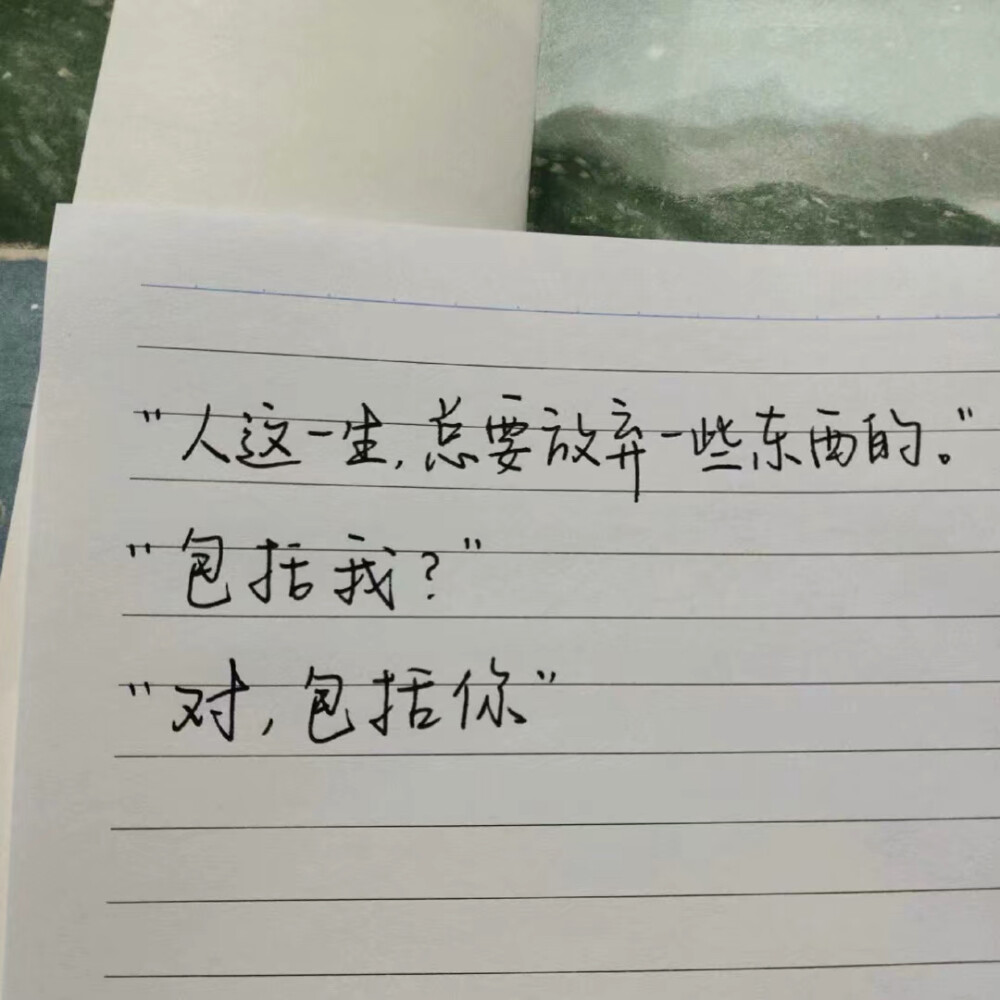 "人这一生,总要放弃一些东西的。"
"包括我?"
"对,包括你"